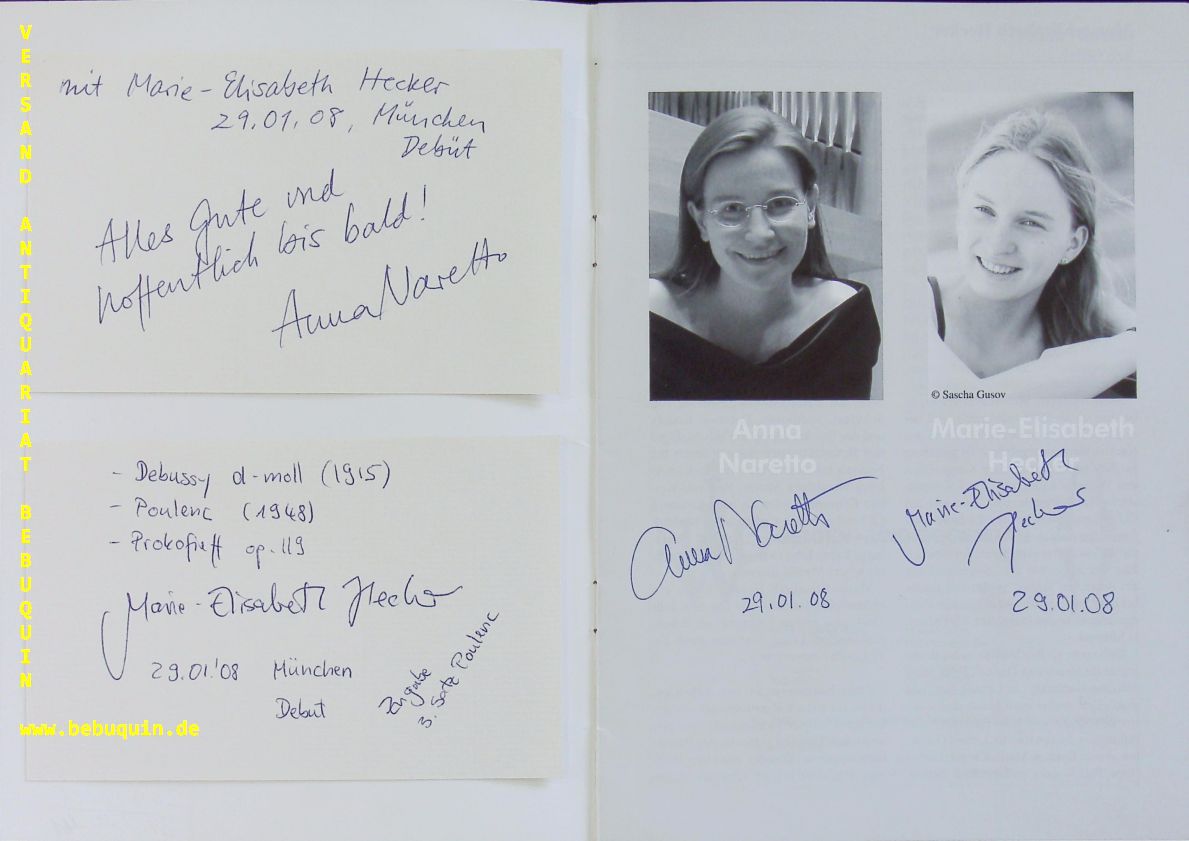 VERSAND ANTIQUARIAT BEBUQUIN
www.bebuquin.de
mit Marie-Elisabeth Hecker
29.01.08, München
Debüt
Alles Gute und
hoffentlich bis bald!
Anna Naretto
- Debussy d-moll (1915)
- Poulenc (1948)
- Prokofieff op. 119
Marie-Elisabeth Hecker
29.01.'08 München
Debut
Zugabe
3. Satz Poulenc
© Sascha Gusov
Anna
Naretto
Marie-Elisabeth
Hecker
Anna Naretto
29.01.08
Marie-Elisabeth
Hecker
29.01.08